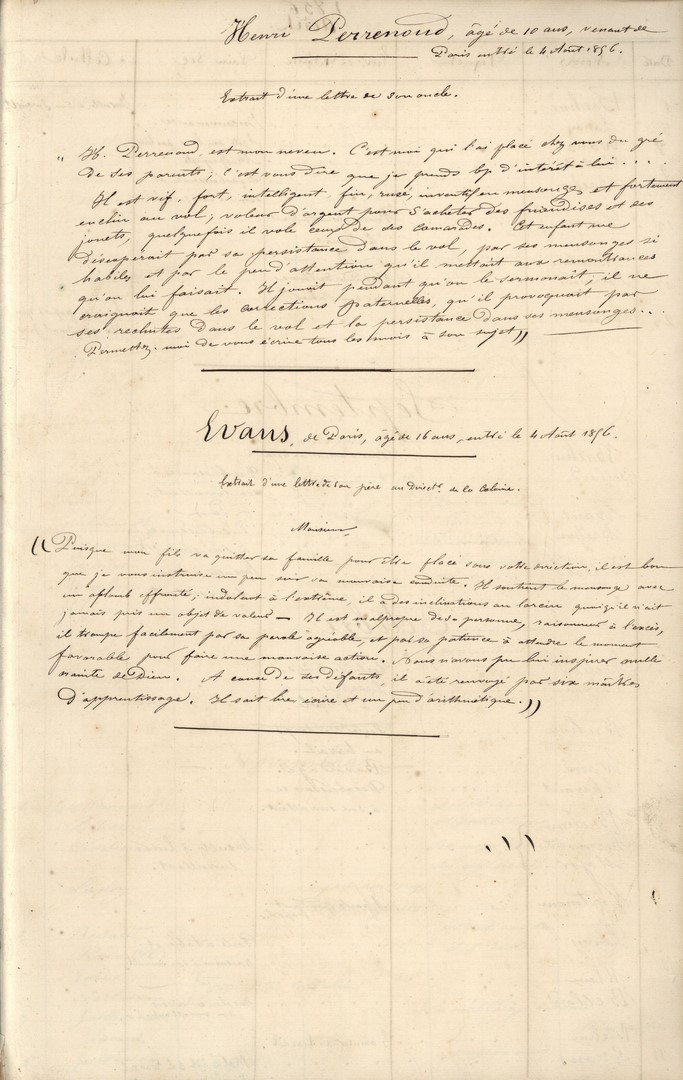 Henri Perrenoud, âgé de 10 ans, venant de
Paris entré le 4 Août 1856.
Extrait d'une lettre de son oncle.
"H. Perrenoud est mon neveu. C'est moi qui l'ai placé chez vous du gré
de ses parents; c'est vous dire que je prends bp d'intérêt à lui....
Il est vif, fort, intelligent, fin, rusé, inventif en mensonges et fortement
enclin au vol; voleur d'argent pour s'acheter des friandises et des
jouets, quelquefois il vole ceux de ses camarades. Cet enfant me
désespérait par sa persistance dans le vol, par ses mensonges si
habiles et par le peu d'attention qu'il mettait aux remontrances
qu'on lui faisait. Il jouait pendant qu'on le sermonait, il ne
craignait que les corrections paternelles, qu'il provoquait par
ses rechutes dans le vol et la persistance dans ses mensonges...
Permettez-moi de vous écrire tous les mois à son sujet"
Evans, de Paris, âgé de 16 ans, entré le 4 Août 1856.
Extrait d'une lettre de son père au Directr. de la Colonie.
Monsieur,
"Puisque mon fils va quitter sa famille pour être placé sous votre direction, il est bon
que je vous instruise un peu sur sa mauvaise conduite. Il soutient le mensonge avec
un aplomb effronté; indolent à l'extrême, il a des inclinations au larcin quoiqu'il n'ait
jamais pris un objet de valeur — Il est malpropre de sa personne, raisonneur à l'excès,
il trompe facilement par sa parole agréable, et par sa patience à attendre le moment
favorable pour faire une mauvaise action. Nous n'avons pu lui inspirer nulle
crainte de Dieu. A cause de ses défauts, il a été renvoyé par six maîtres
d'apprentissage. Il sait lire écrire et un peu d'arithmétique."